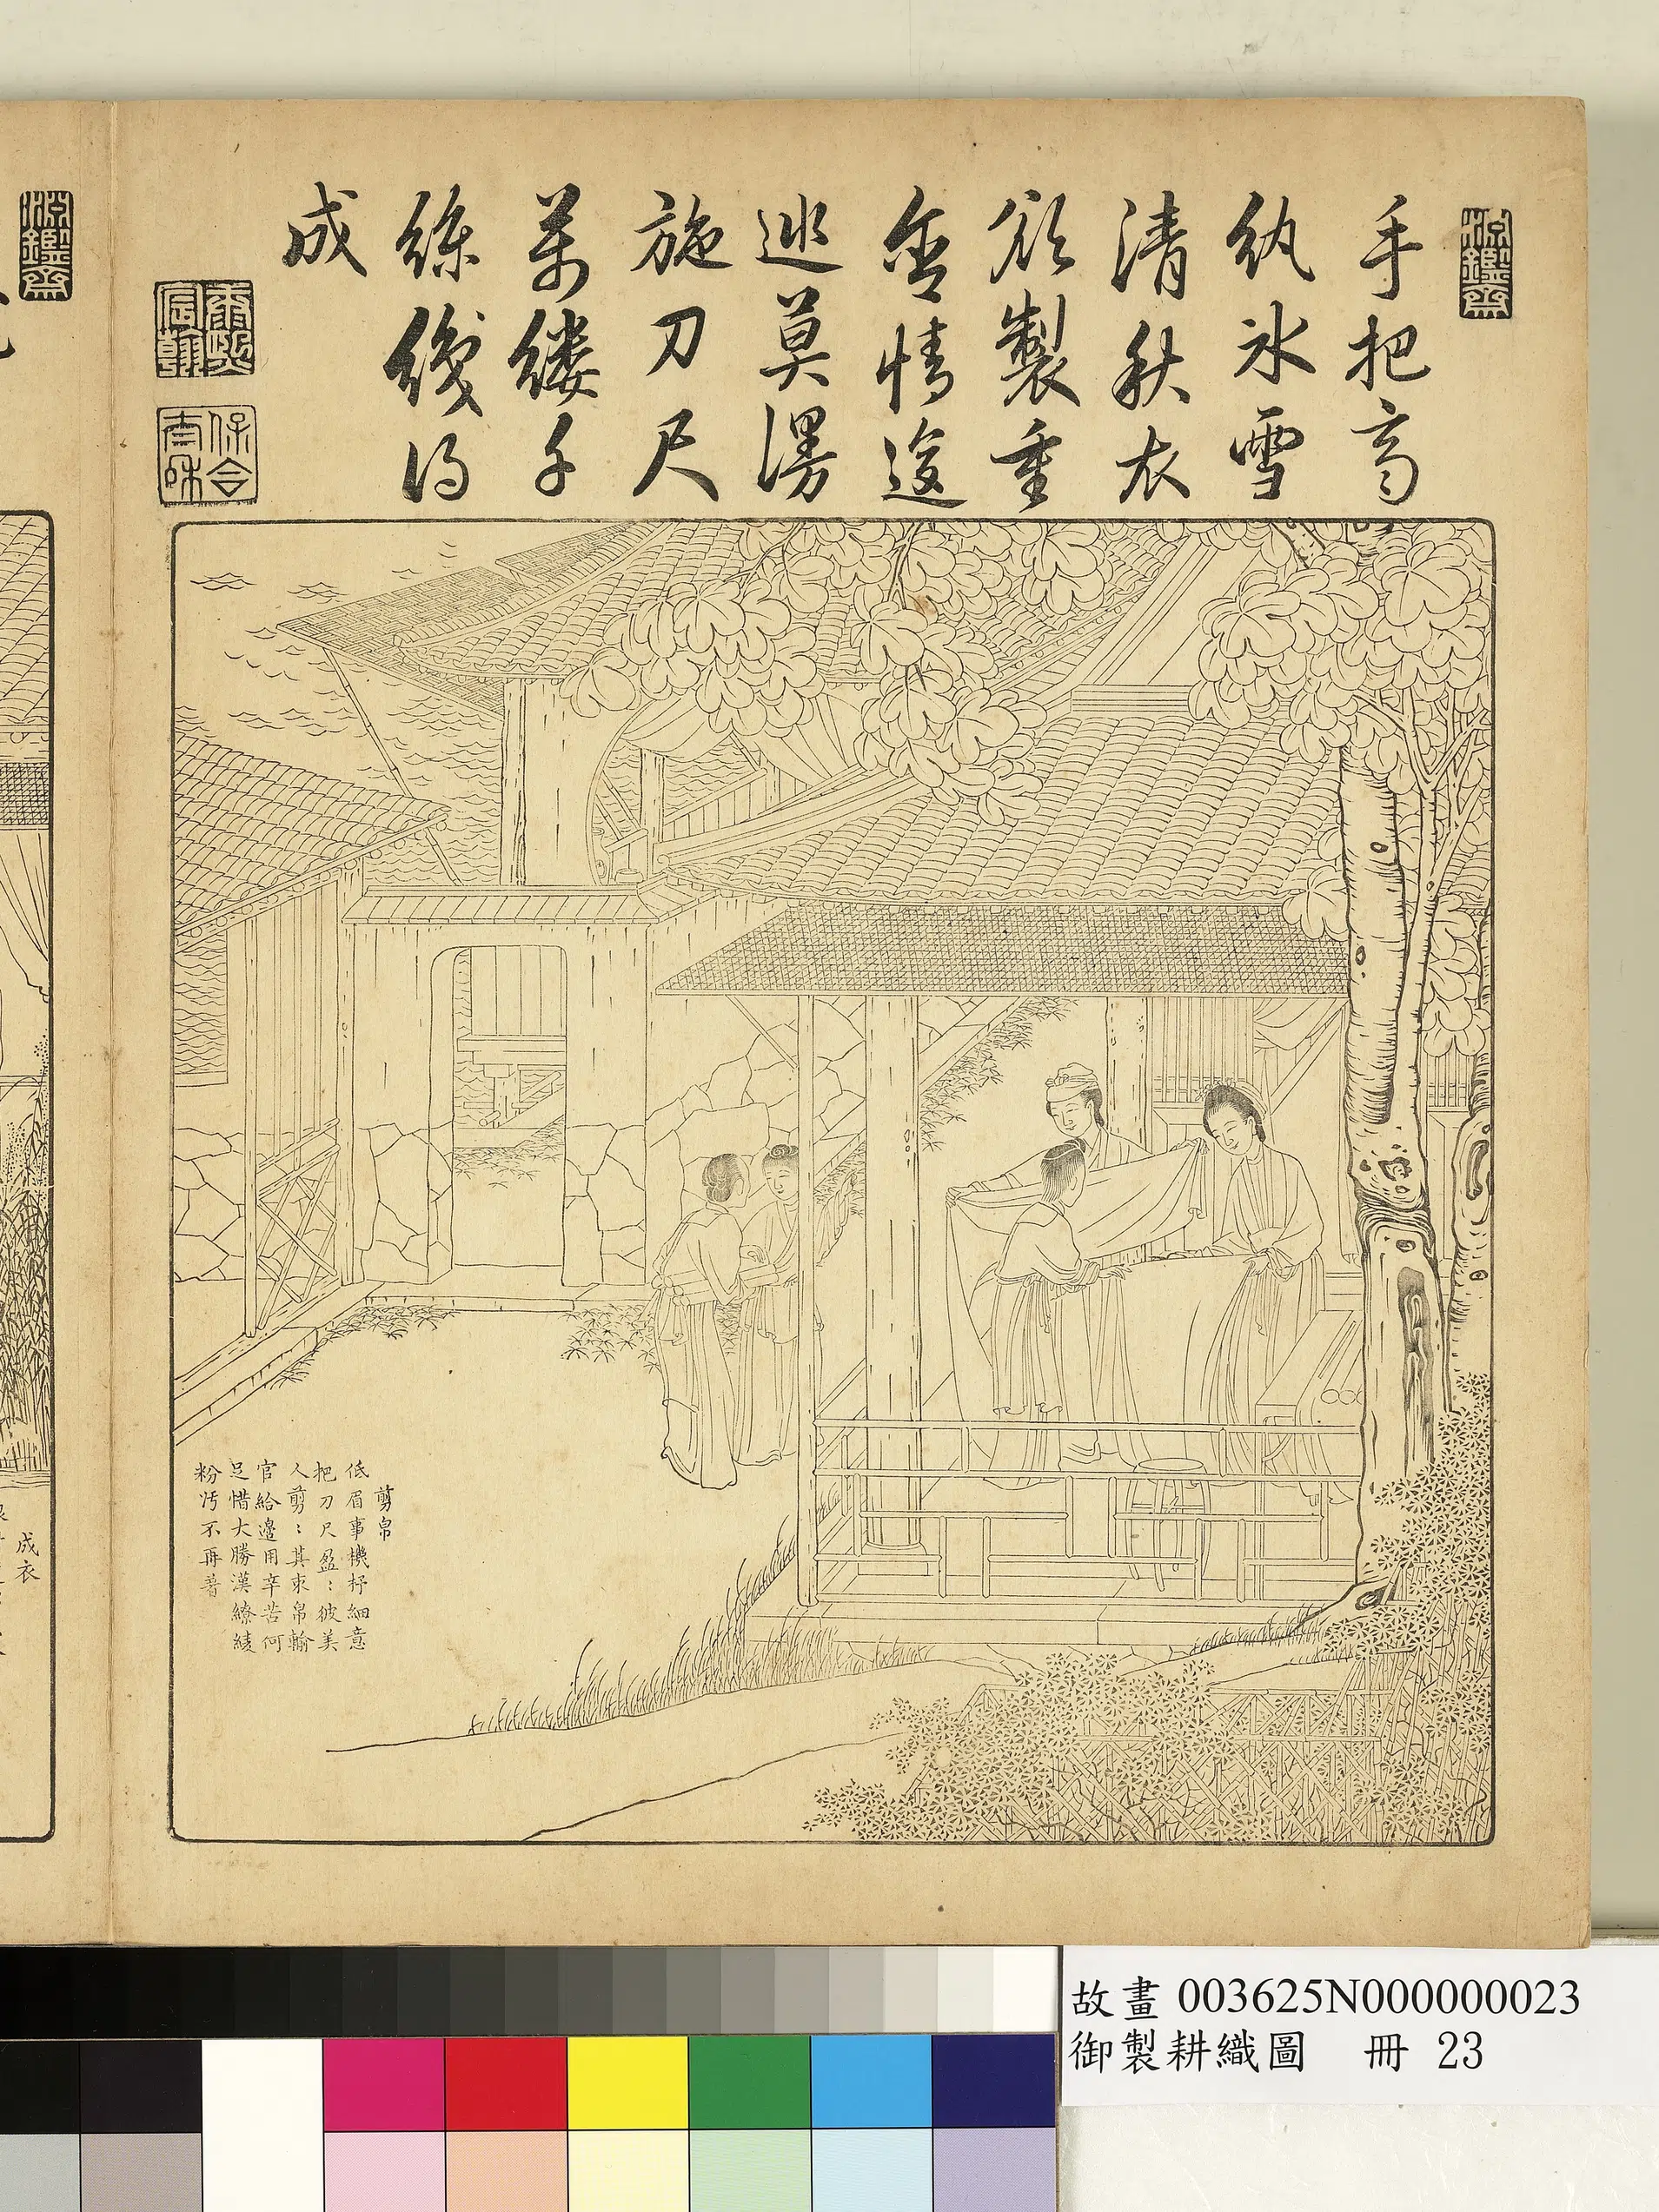 淵鑒齋
手把齊
紈冰雪
清秋衣
欲製重
含情逡
巡莫謾
施刀尺
萬縷千
絲織得
成
康熙宸翰
保合太和
剪帛
低眉事機杼細意
把刀尺盈〻彼美
人剪〻其束帛輸
官給邊用辛苦何
足惜大勝漢繚綾
粉汚不再著
淵鑒齋
成衣
故畫 003625N000000023
御製耕織圖 冊 23